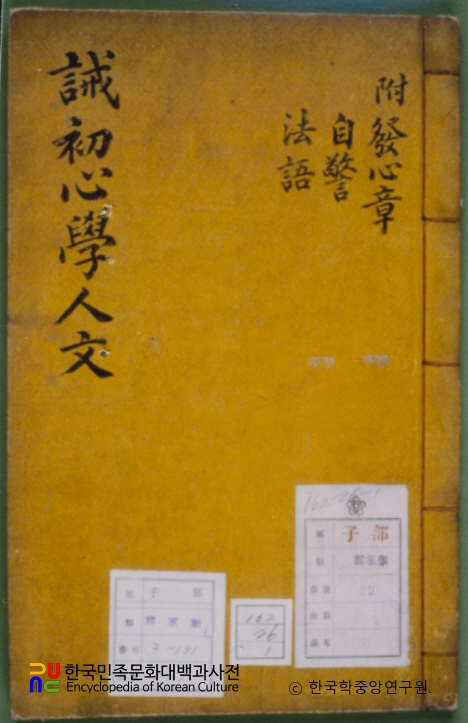 誡初心學人文
附 發心章
自警
法語
162-26-1
子部
子部
釋家類
3-131
162
26
1
한국민족문화대백과사전
Encyclopedia of Korean Culture
© 한국학중앙연구원.